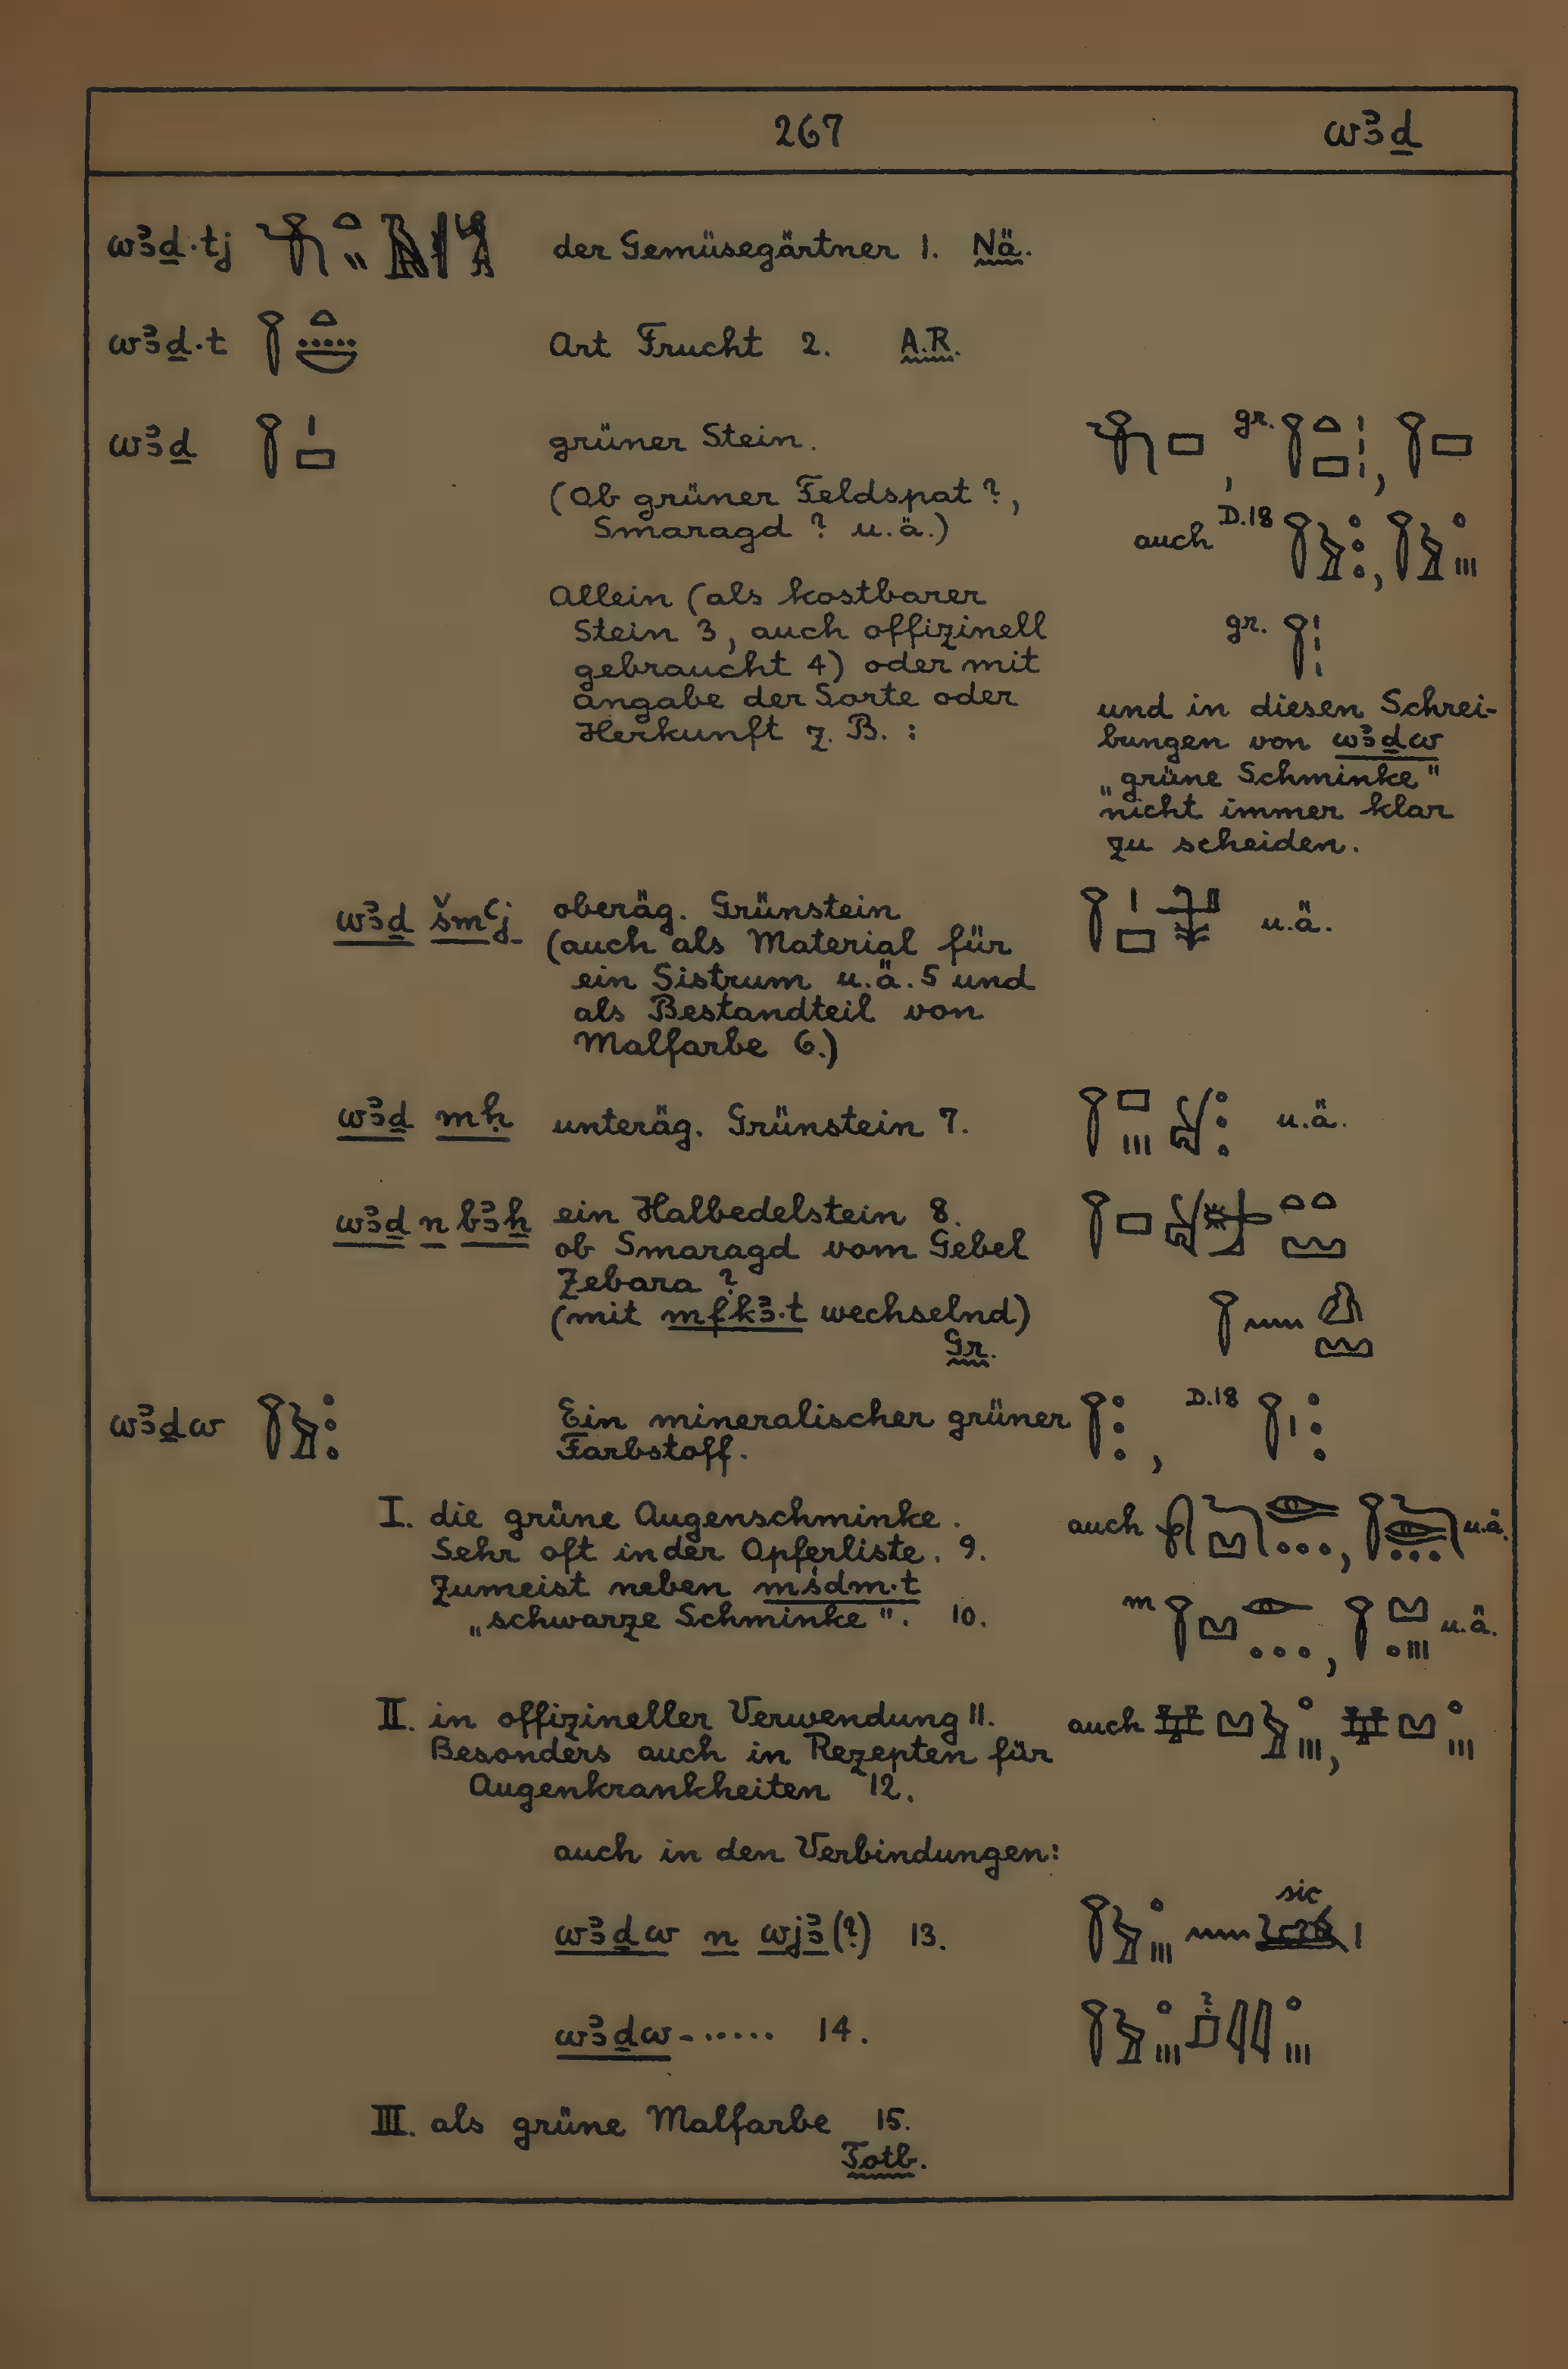 267 wꜣḏ
wꜣḏ·tj der Gemüsegärtner 1. Nä.
wꜣḏ·t Art Frucht 2. A.R.
wꜣḏ grüner Stein.
(Ob grüner Feldspat?,
Smaragd? u.ä.)
Allein (als kostbarer
Stein 3, auch offizinell
gebraucht 4) oder mit
Angabe der Sorte oder
Herkunft z. B.:
, gr. ,
auch D.18 ,
gr.
und in diesen Schrei-
bungen von wꜣḏw
„grüne Schminke"
nicht immer klar
zu scheiden.
wꜣḏ šmꜥj oberäg. Grünstein u.ä.
(auch als Material für
ein Sistrum u.ä. 5 und
als Bestandteil von
Malfarbe 6.)
wꜣḏ mḥ unteräg. Grünstein 7. u.ä.
wꜣḏ n bꜣẖ ein Halbedelstein 8.
ob Smaragd vom Gebel
Zebara?
(mit mfkꜣ·t wechselnd)
Gr.
wꜣḏw Ein mineralischer grüner , D.18
Farbstoff.
I. die grüne Augenschminke. auch , u.ä.
Sehr oft in der Opferliste. 9.
Zumeist neben mśdm·t
„schwarze Schminke". 10. m , u.ä.
II. in offizineller Verwendung 11. auch ,
Besonders auch in Rezepten für
Augenkrankheiten 12.
auch in den Verbindungen:
wꜣḏw n wjꜣ(?) 13. sic
wꜣḏw-...... 14. ?
III. als grüne Malfarbe 15.
Totb.